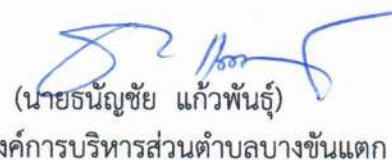 (นายธนัญชัย แก้วพันธุ์)
งค์การบริหารส่วนตำบลบางขันแตก